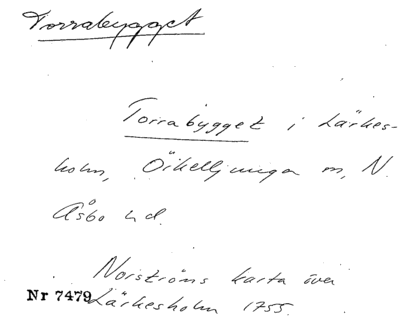 Torrabygget
Torrabygget i Lärkes-
holm, Örkelljunga m, N.
Åsbo hd.
Norströms karta över
Nr 7479 Lärkesholm 1755.